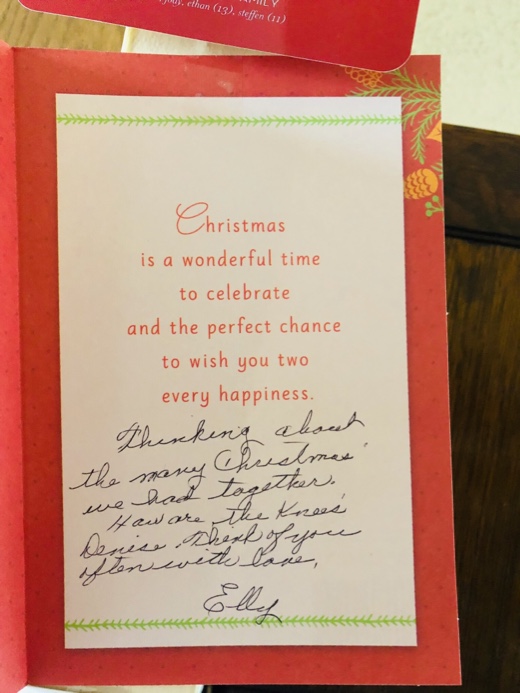 ethan (13), steffen (11)
Christmas
is a wonderful time
to celebrate
and the perfect chance
to wish you two
every happiness.
Thinking about
the many Christmas'
we had together.
How are the Knees'
Denise. Think of you
often with love,
Elly